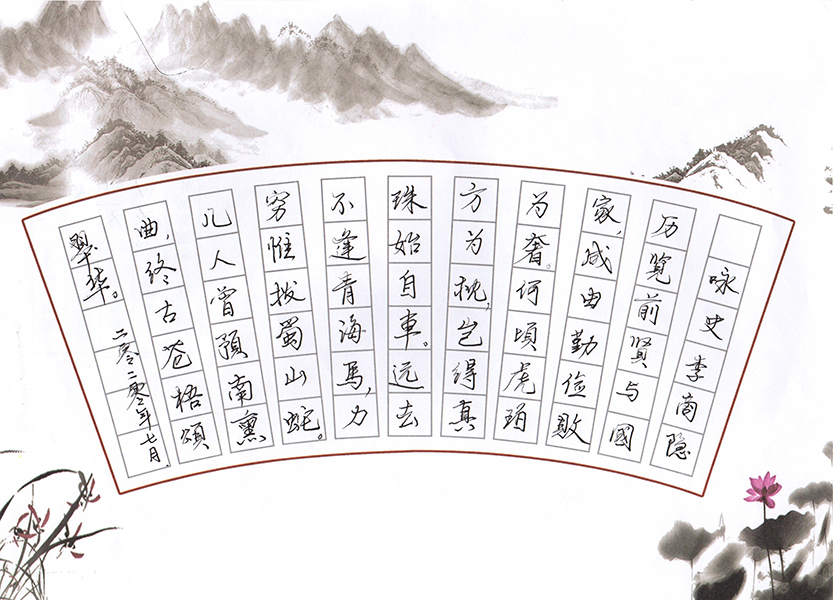 咏史李商隐
历览前贤与國
家，成由勤俭敗
为奢。何須虎珀
方为枕，岂得真
珠始自車。远去
不逢青海馬，力
穷惟拔蜀山蛇。
几人曾預南熏
曲，终古苍梧頌
翠华。
二零二零年七月.